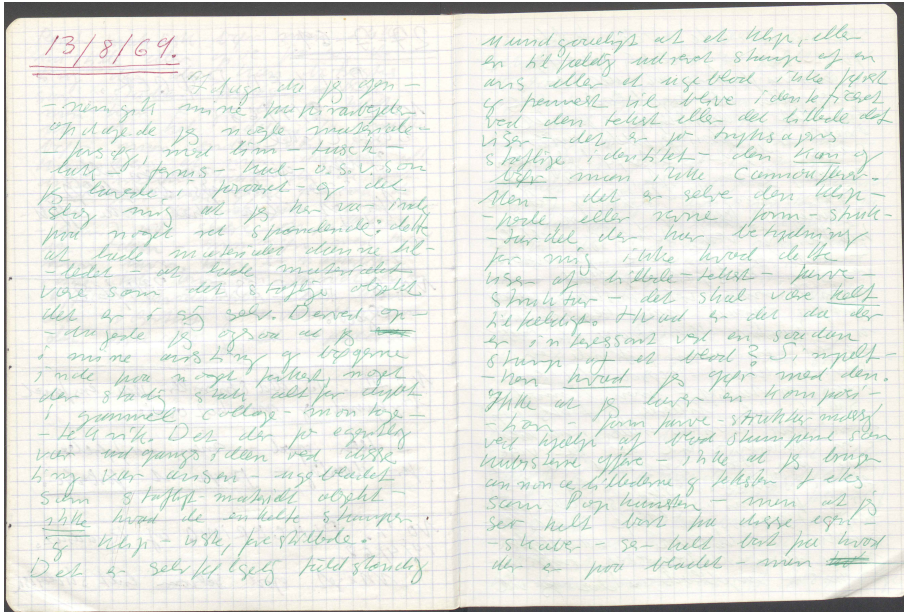 13/8/69.
I dag da jeg gen-
-nemgik mine papirarbejder
opdagede jeg nogle materiale-
-forsøg, med lim - tusch -
lak - fernis - kul - o.s.v. som
jeg lavede i foraaret - og det
slog mig at jeg her var inde
paa noget ret spændende: dette
at lade materialet danne bil-
-ledet - at lade materialet
være som det stoflige objekt
det er i sig selv. Derved op-
-dagede jeg ogsaa at jeg
i mine avisting og bøgerne
inde paa noget forkert noget
der stadig stak alt for dybt
i gammel collage - montage -
-teknik. Det der jo egentlig
var udgangsideen ved disse
ting var avisen - ugebladet
som stofligt - materielt objekt -
ikke hvad de enkelte stumper
og klip - viste, forestillede.
Det er selvfølgelig fuldstændig
uundgaaeligt at et klip, eller
en tilfældig udrevet stump af en
avis eller et ugeblad ikke først
og fremmest vil blive identificeret
ved den tekst eller det billede det
viser - det er jo tryksagens
stoflige identitet - den kan og
bør man ikke camouflere.
Men - det er selve den klip-
-pede eller revne form - struk-
-tur det der har betydning
for mig ikke hvad dette
viser af billede - tekst - farve -
struktur - det skal være helt
tilfældigt. Hvad er det da der
er interessant ved en saadan
stump af et blad? Simpelt-
-hen hvad jeg gør med den.
Ikke at jeg laver en komposi-
-tion - form farve - struktur mæssigt
ved hjælp af blad stumperne som
kubisterne gjorde - ikke at jeg bruger
annonce billederne og teksten f eks.
som Popkunsten - men at jeg
ser helt bort fra disse egen-
-skaber - ser helt bort fra hvad
der er paa bladet - men